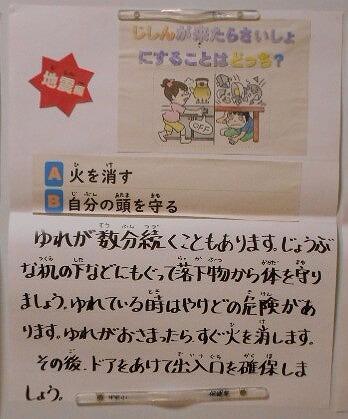 地震編
じしんが来たらさいしょ
にすることはどっち？
OFF
A 火を消す
B 自分の頭を守る
ゆれが数分続くこともあります。じょうぶ
な机の下などにもぐって落下物から体を守り
ましょう。ゆれている時はやけどの危険があ
ります。ゆれがおさまったら、すぐ火を消します。
その後、ドアをあけて出入口を確保しま
しょう。